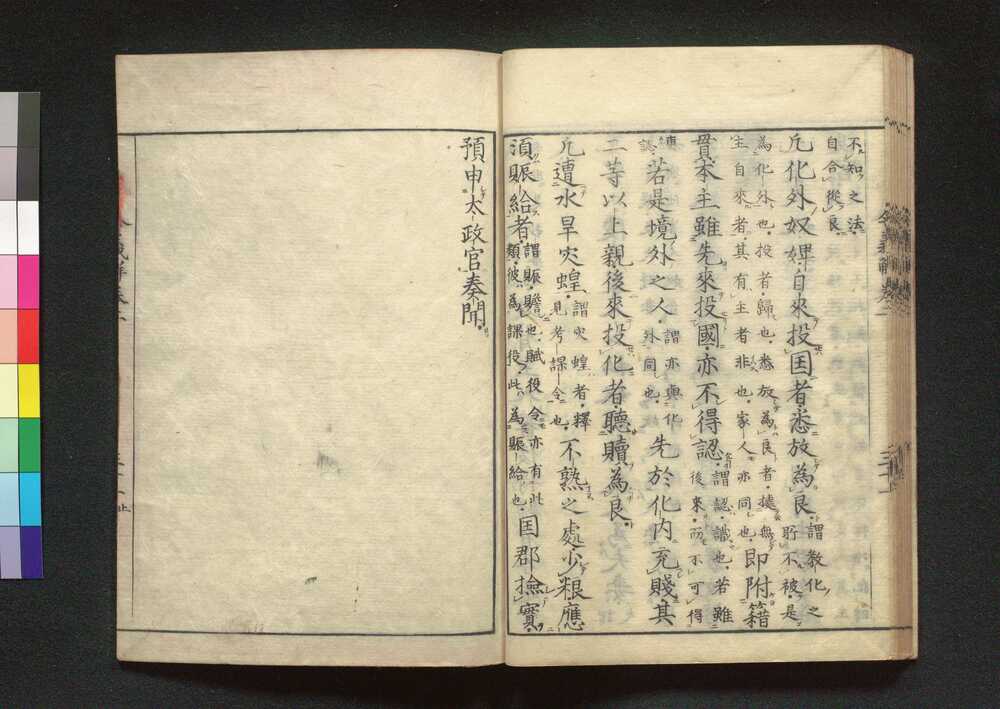 不知之法
自合從良
凢化外奴婢自來投国者悉放為良謂教化之
所不被是
為化外也投者歸也悉放為良者據無
主自來者其有主者非也家人亦同也即附籍
貫本主雖先來投國亦不得認謂認識也若雖
後來而不可得
認若是境外之人謂亦與化
外同也先於化内充賤其
二等以上親後來投化者聽贖為良
凢遭水旱灾蝗謂灾蝗者釋
見考課令也不熟之處少粮應
須賑給者謂賑贍也賦役令亦有此
類彼為課役此為賑給也国郡撿實
預申太政官奏聞
令義解卷二